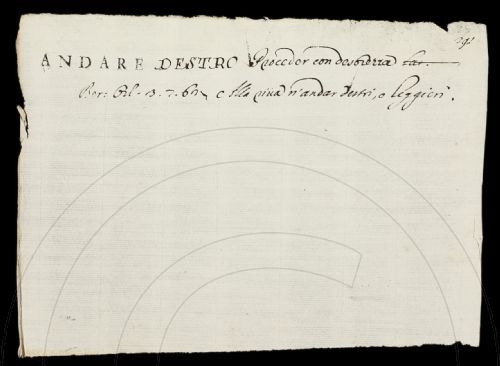 ANDARE DESTRO Proceder con destrezza far.
Ber: Orl. 3. 7. 61. E alla riva n'andar destri, e leggieri.